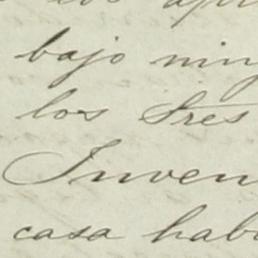 los
bajo nin
los tres
Inven
casa hab